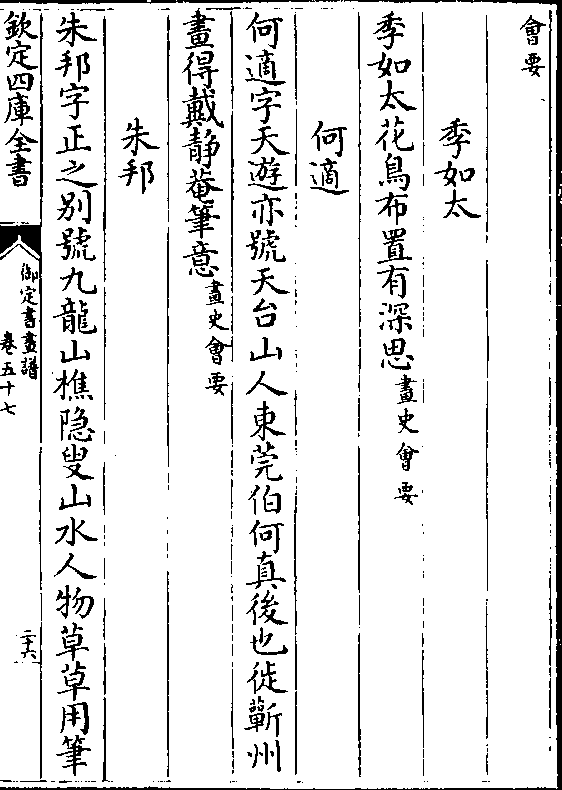 會要
季如太
季如太花鳥布置有深思畫史會要
何適
何適字天遊亦號天台山人東莞伯何真後也徙蘄州
畫得戴静菴筆意畫史會要
朱邦
朱邦字正之别號九龍山樵隐叟山水人物草草用筆
欽定四庫全書
御定書畫譜
卷五十七
二十六